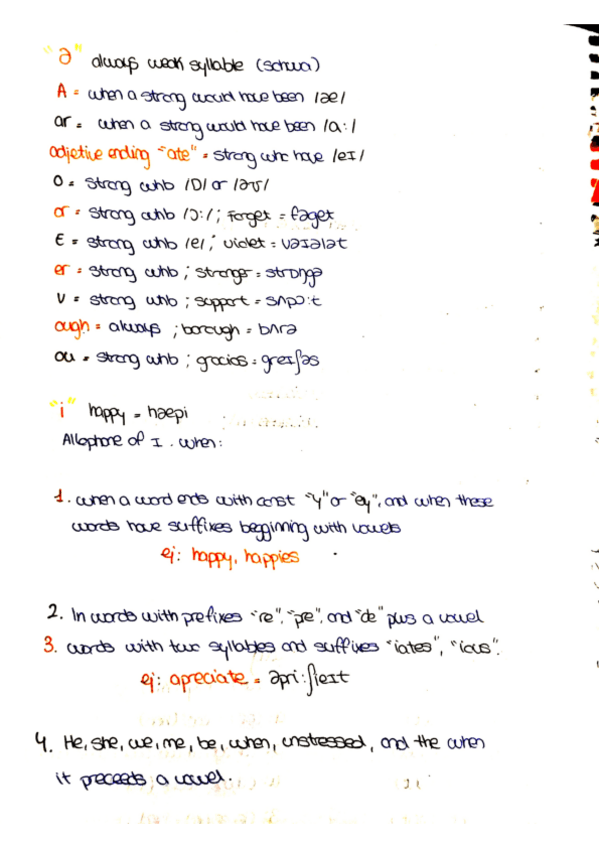 "ə" always weak syllable (schwa)
A = when a strong would have been /æ/
ar = when a strong would have been /ɑ:/
adjetive ending "ate" = strong whb have /eɪ/
O = strong whb /ɒ/ or /əʊ/
or = strong whb /ɔ:/ ; Forget = fəget
E = strong whb /e/ ; violet = vaɪələt
er = strong whb ; stronger = strɒngə
U = strong whb ; support = sʌpɔ:t
ough = always ; borough = bʌrə
ou = strong whb ; gracios = greɪʃəs
"i" happy = hæpi
Allophone of I . when:
1. when a word ends with const "y" or "ey", and when these
words have suffixes beggining with vowels
ej: happy, happies
2. In words with prefixes "re", "pre", and "de" plus a vowel
3. words with two syllables and suffixes "iates", "ious".
ej: apreciate = əpri:ʃieɪt
4. He, she, we, me, be, when, unstressed, and the when
it preceeds a vowel.